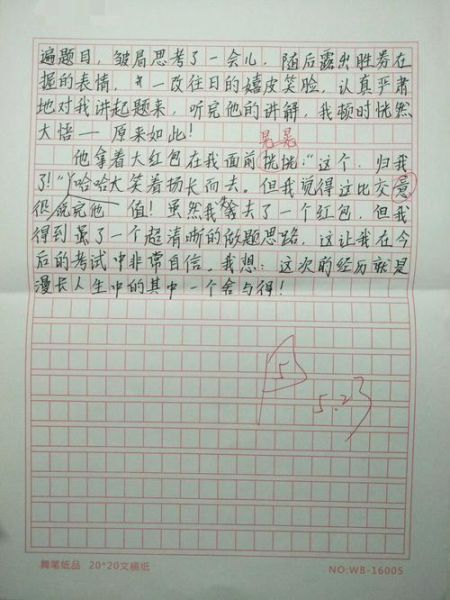 遍题目,皱眉思考了一会儿,随后露出胜券在
握的表情,一改往日的嬉皮笑脸,认真严肃
地对我讲起题来,听完他的讲解,我顿时恍然
大悟——原来如此!
晃晃
他拿着大红包在我面前恍恍:“这个,归我
了!”哈哈大笑着扬长而去。但我觉得这比交意
很 值!虽然我舍去了一个红包,但我
得到了一个超清晰的做题思路,这让我在今
后的考试中非常自信。我想:这次的经历就是
漫长人生中的其中一个舍与得!
5
5.23
舞笔纸品 20*20文稿纸
NO:WB-16005